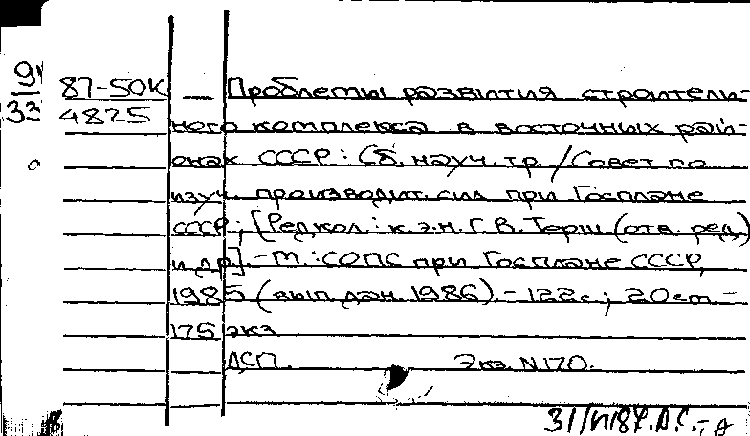 87-50К — Проблемы развития строитель-
4825 ного комплекса в восточных рай-
онах СССР: Сб. науч. тр / Совет по
изуч. производит. сил при Госплане
СССР; [Редкол.: к.э.н. Г.В. (отв. ред.)
и др]. - М.: СОПС при Госплане СССР,
1985 (вып. дан. 1986). - 122с; 20см -
175 экз
ДСП. Экз. N170.